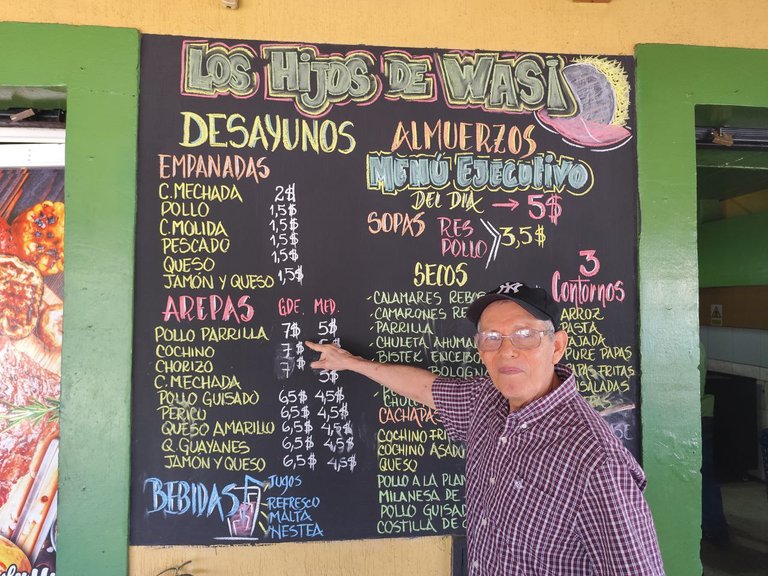 LOS HIJOS DE WASI
DESAYUNOS
EMPANADAS
C.MECHADA 2$
POLLO 1,5$
C.MOLIDA 1,5$
PESCADO 1,5$
QUESO 1,5$
JAMÓN Y QUESO 1,5$
AREPAS GDE. MED.
POLLO PARRILLA 7$ 5$
COCHINO 7$
CHORIZO 7
C.MECHADA 5$
POLLO GUISADO 6,5$ 4,5$
PERICO 6,5$ 4,5$
QUESO AMARILLO 6,5$ 4,5$
Q.GUAYANES 6,5$ 4,5$
JAMÓN Y QUESO 6,5$ 4,5$
BEBIDAS
JUGOS
REFRESCO
MALTA
NESTEA
ALMUERZOS
MENÚ EJECUTIVO
DEL DIA → 5$
SOPAS RES
POLLO 3,5$
SECOS
CALAMARES REBOS
CAMARONES RE
PARRILLA
CHULETA AHUMA
BISTEK ENCEBO
BOLOGNA
CACHAPA
COCHINO FRIT
COCHINO ASADO
QUESO
POLLO A LA PLAN
MILANESA DE
POLLO GUISAD
COSTILLA DE C
3
Contornos
ARROZ
PASTA
TAJADA
PURE PAPAS
PAPAS FRITAS
ENSALADAS
NY